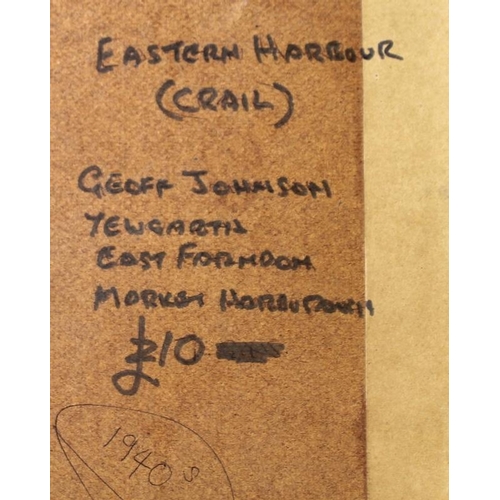 EASTERN HARBOUR
(CRAIL)
GEOFF JOHNSON
YEWGARTH
EAST FARNDON
MARKET HARBOROUGH
£10
1940s